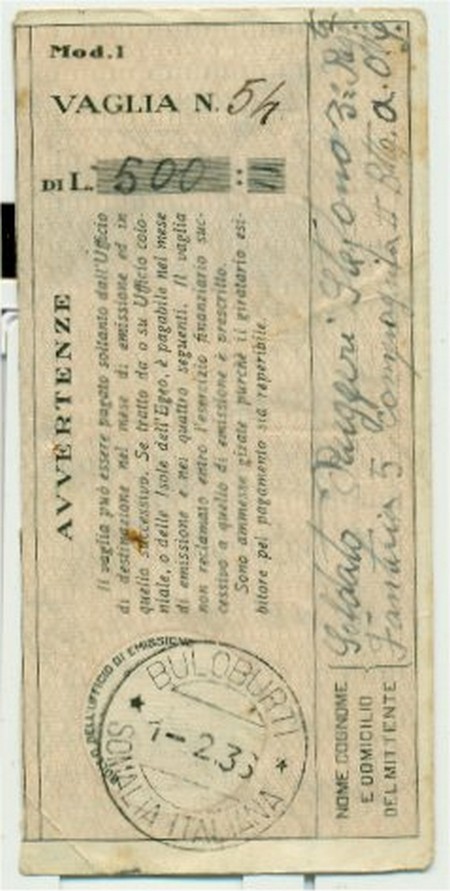 Mod.1
VAGLIA N. 54
DI L. 500
AVVERTENZE
Il vaglia può essere pagato soltanto dall'Ufficio
di destinazione nel mese di emissione ed in
quello successivo. Se tratto da o su Ufficio colo-
niale, o delle Isole dell'Egeo, è pagabile nel mese
di emissione e nei quattro seguenti. Il vaglia
non reclamato entro l'esercizio finanziario suc-
cessivo a quello di emissione è prescritto.
Sono ammesse girate purchè il giratario esi-
bitore pel pagamento sia reperibile.
BOLLO DELL'UFFICIO DI EMISSIONE
BULOBURTI
1-2.36
SOMALIA ITALIANA
NOME COGNOME
E DOMICILIO
DEL MITTENTE
Soldato Ruggeri Stefano 3°
Fanteria 5 Compagnia II Btg. a. o.